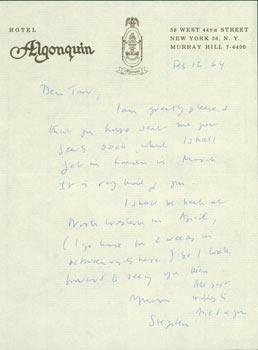 HOTEL
Algonquin
59 WEST 44TH STREET
NEW YORK 36, N. Y.
MURRAY HILL 7-4400
Feb 12 64
Dear
I am greatly pleased
that you have sent me your
book which I shall
get in London in March
It is very kind of you.
I shall be back at
North Western in April,
(I go home for 2 weeks in
between visits here.) So I look
forward to seeing you then
All best
wishes to
Stephen